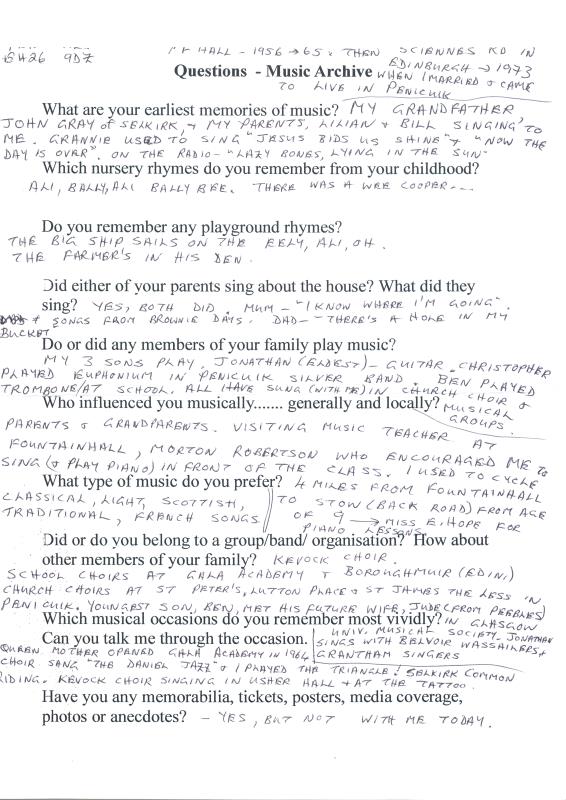 EH26 9DZ
HALL - 1956 → 65 & THEN SCIENNES RD IN
EDINBURGH → 1973
Questions - Music Archive WHEN I MARRIED & CAME
TO LIVE IN PENICUIK
What are your earliest memories of music? MY GRANDFATHER
JOHN GRAY of SELKIRK, & MY PARENTS, LILIAN & BILL SINGING TO
ME. GRANNIE USED TO SING "JESUS BIDS US SHINE" & "NOW THE
DAY IS OVER". ON THE RADIO - "LAZY BONES, LYING IN THE SUN"
Which nursery rhymes do you remember from your childhood?
ALI, BALLY, ALI BALLY BEE. THERE WAS A WEE COOPER---
Do you remember any playground rhymes?
THE BIG SHIP SAILS ON THE EELY, ALI, OH.
THE FARMER'S IN HIS DEN.
Did either of your parents sing about the house? What did they
sing? YES, BOTH DID. MUM - "I KNOW WHERE I'M GOING".
& SONGS FROM BROWNIE DAYS. DAD - "THERE'S A HOLE IN MY
BUCKET"
Do or did any members of your family play music?
MY 3 SONS PLAY. JONATHAN (ELDEST) - GUITAR. CHRISTOPHER
PLAYED EUPHONIUM IN PENICUIK SILVER BAND. BEN PLAYED
TROMBONE/AT SCHOOL. ALL HAVE SUNG (WITH ME) IN CHURCH CHOIR &
MUSICAL GROUPS.
Who influenced you musically....... generally and locally?
PARENTS & GRANDPARENTS. VISITING MUSIC TEACHER AT
FOUNTAINHALL, MORTON ROBERTSON WHO ENCOURAGED ME TO
SING (& PLAY PIANO) IN FRONT OF THE CLASS. I USED TO CYCLE
4 MILES FROM FOUNTAINHALL
TO STOW (BACK ROAD) FROM AGE
OF 9 → MISS E. HOPE FOR
PIANO LESSONS.
What type of music do you prefer?
CLASSICAL, LIGHT, SCOTTISH,
TRADITIONAL, FRENCH SONGS
Did or do you belong to a group/band/ organisation? How about
other members of your family? KEVOCK CHOIR.
SCHOOL CHOIRS AT GALA ACADEMY & BOROUGHMUIR (EDIN.)
CHURCH CHOIRS AT ST PETER'S, LUTTON PLACE & ST JAMES THE LESS IN
PENICUIK. YOUNGEST SON, BEN, MET HIS FUTURE WIFE, JUDE (FROM PEEBLES)
IN GLASGOW
UNIV. MUSICAL SOCIETY. JONATHAN
SINGS WITH BELVOIR WASSAILERS &
GRANTHAM SINGERS
Which musical occasions do you remember most vividly?
Can you talk me through the occasion.
QUEEN MOTHER OPENED GALA ACADEMY IN 1964
CHOIR SANG "THE DANIEL JAZZ" & I PLAYED THE TRIANGLE! SELKIRK COMMON
RIDING. KEVOCK CHOIR SINGING IN USHER HALL & AT THE TATTOO.
Have you any memorabilia, tickets, posters, media coverage,
photos or anecdotes? - YES, BUT NOT WITH ME TODAY.